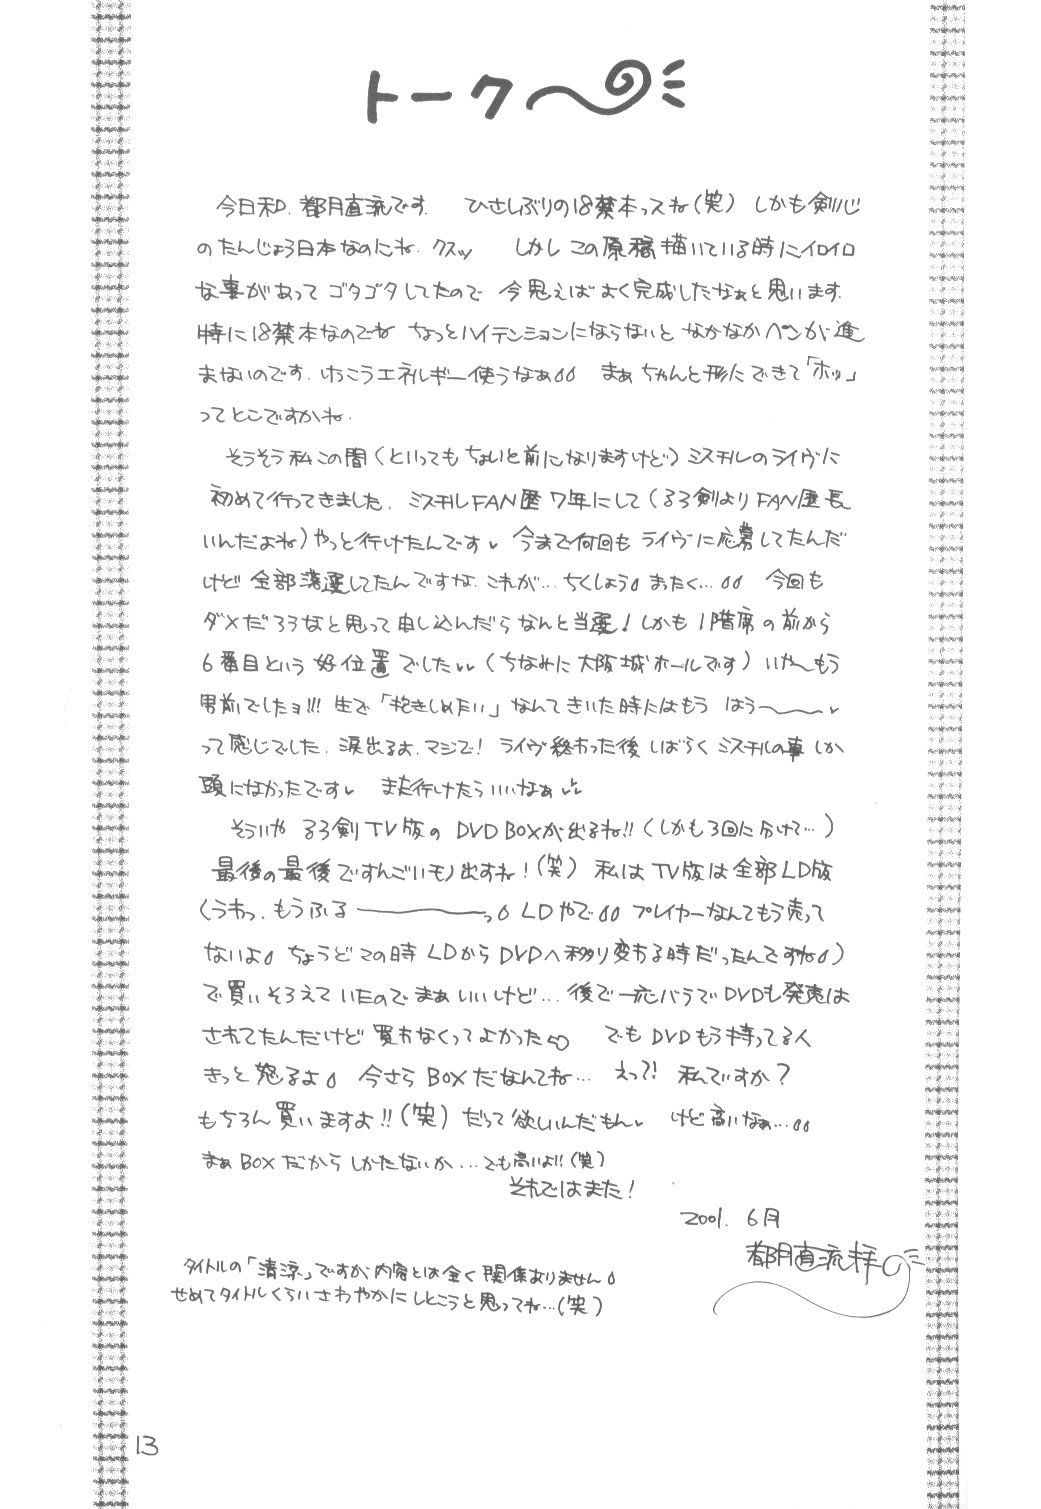 トーク〜
今日和. 都月直流です. ひさしぶりの18禁本っスね(笑) しかも剣心
のたんじょう日本なのにね. クスッ しかしこの原稿描いている時にイロイロ
な事があって ゴタゴタしてたので 今思えば よく完成したなぁと思います.
特に18禁本なのでね ちょっとハイテンションにならないと なかなかペンが進
まないのです. けっこうエネルギー使うなぁ まぁ ちゃんと形にできて「ホッ」
ってとこですかね.
そうそう私この間(といってもちょいと前になりますけど)ミスチルのライヴに
初めて行ってきました. ミスチルFAN歴 7年にして(るろ剣よりFAN歴長
いんだよね)やっと行けたんです♥ 今まで何回も ライヴに応募してたんだ
けど 全部落選してたんですな. これが… ちくしょう まったく… 今回も
ダメだろうなと思って申し込んだらなんと当選! しかも 1階席の前から
6番目という 好位置でした♥ (ちなみに大阪城ホールです) いや〜もう
男前でしたョ!!! 生で「抱きしめたい」なんてきいた時にはもう はう〜♥
って感じでした. 涙出るよ. マジで! ライヴ終わった後しばらく ミスチルの事しか
頭になかったです♥ また行けたらいいなぁ♥
そういや るろ剣TV版の DVD BOXが出るね!! (しかも3回に分けて…)
最後の最後ですんごいモノ出すね! (笑) 私は TV版は全部LD版
(うわっ. もうふる――――っ LDやで プレイヤーなんてもう売って
ないよ ちょうどこの時 LDからDVDへ移り変わる時だったんですね)
で買いそろえていたのでまぁいいけど… 後で一応バラでDVDも発売は
されてたんだけど 買わなくってよかった でも DVDもう持ってる人
きっと 怒るよ 今さら BOXだなんてね… えっ?! 私ですか?
もちろん買いますよ!! (笑) だって欲しいんだもん♥ けど高いなぁ…
まぁBOXだからしかたないか…でも高いよ!! (笑)
それではまた!
2001. 6月
都月直流拝
タイトルの「清涼」ですが内容とは全く関係ありません
せめてタイトルくらいさわやかにしとこうと思ってね…(笑)
13